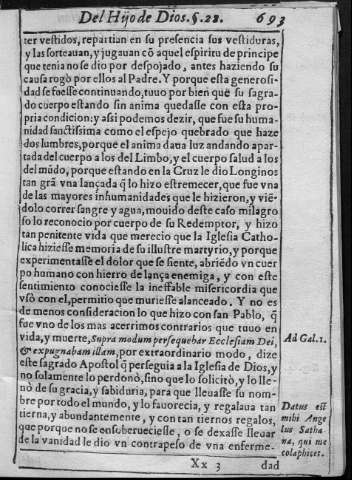 Del Hijo de Dios. §. 22. 693
ter vestidos, repartian en su presencia sus vestiduras,
y las sorteauan, y jugauan cõ aquel espiritu de principe
que tenia no se dio por despojado, antes haziendo su
causa rogò por ellos al Padre. Y porque esta generosi-
dad se fuesse continuando, tuuo por bien que su sagra-
do cuerpo estando sin anima quedasse con esta pro-
pria condicion: y assi podemos dezir, que fue su huma-
nidad sanctissima como el espejo quebrado que haze
dos lumbres, porque el anima daua luz andando apar-
tada del cuerpo a los del Limbo, y el cuerpo salud a los
del mũdo, porque estando en la Cruz le dio Longinos
tan grã vna lançada q̃ lo hizo estremecer, que fue vna
de las mayores inhumanidades que le hizieron, y viẽ-
dolo correr sangre y agua, mouido deste caso milagro
so lo reconocio por cuerpo de su Redemptor, y hizo
tan penitente vida que merecio que la Iglesia Catho-
lica hiziesse memoria de su illustre martyrio, y porque
experimentasse el dolor que se siente, abriẽdo vn cuer
po humano con hierro de lança enemiga, y con este
sentimiento conociesse la ineffable misericordia que
vsò con el, permitio que muriesse alanceado. Y no es
de menos consideracion lo que hizo con san Pablo, q̃
fue vno de los mas acerrimos contrarios que tuuo en
vida, y muerte, Supra modum persequebar Ecclesiam Dei,
& expugnabam illam, por extraordinario modo, dize
este sagrado Apostol q̃ perseguia a la Iglesia de Dios, y
no solamente lo perdonò, sino que lo solicitò, y lo lle-
nò de su gracia, y sabiduria, para que lleuasse su nom-
bre por todo el mundo, y lo fauorecia, y regalaua tan
tierna, y abundantemente, y con tan tiernos regalos,
que porque no se ensoberueciesse, o se dexasse lleuar
de la vanidad le dio vn contrapeso de vna enferme-
Xx 3 dad
Ad Gal. 1.
Datus est
mihi Ange
lus Satha
na, qui me
colaphizet.